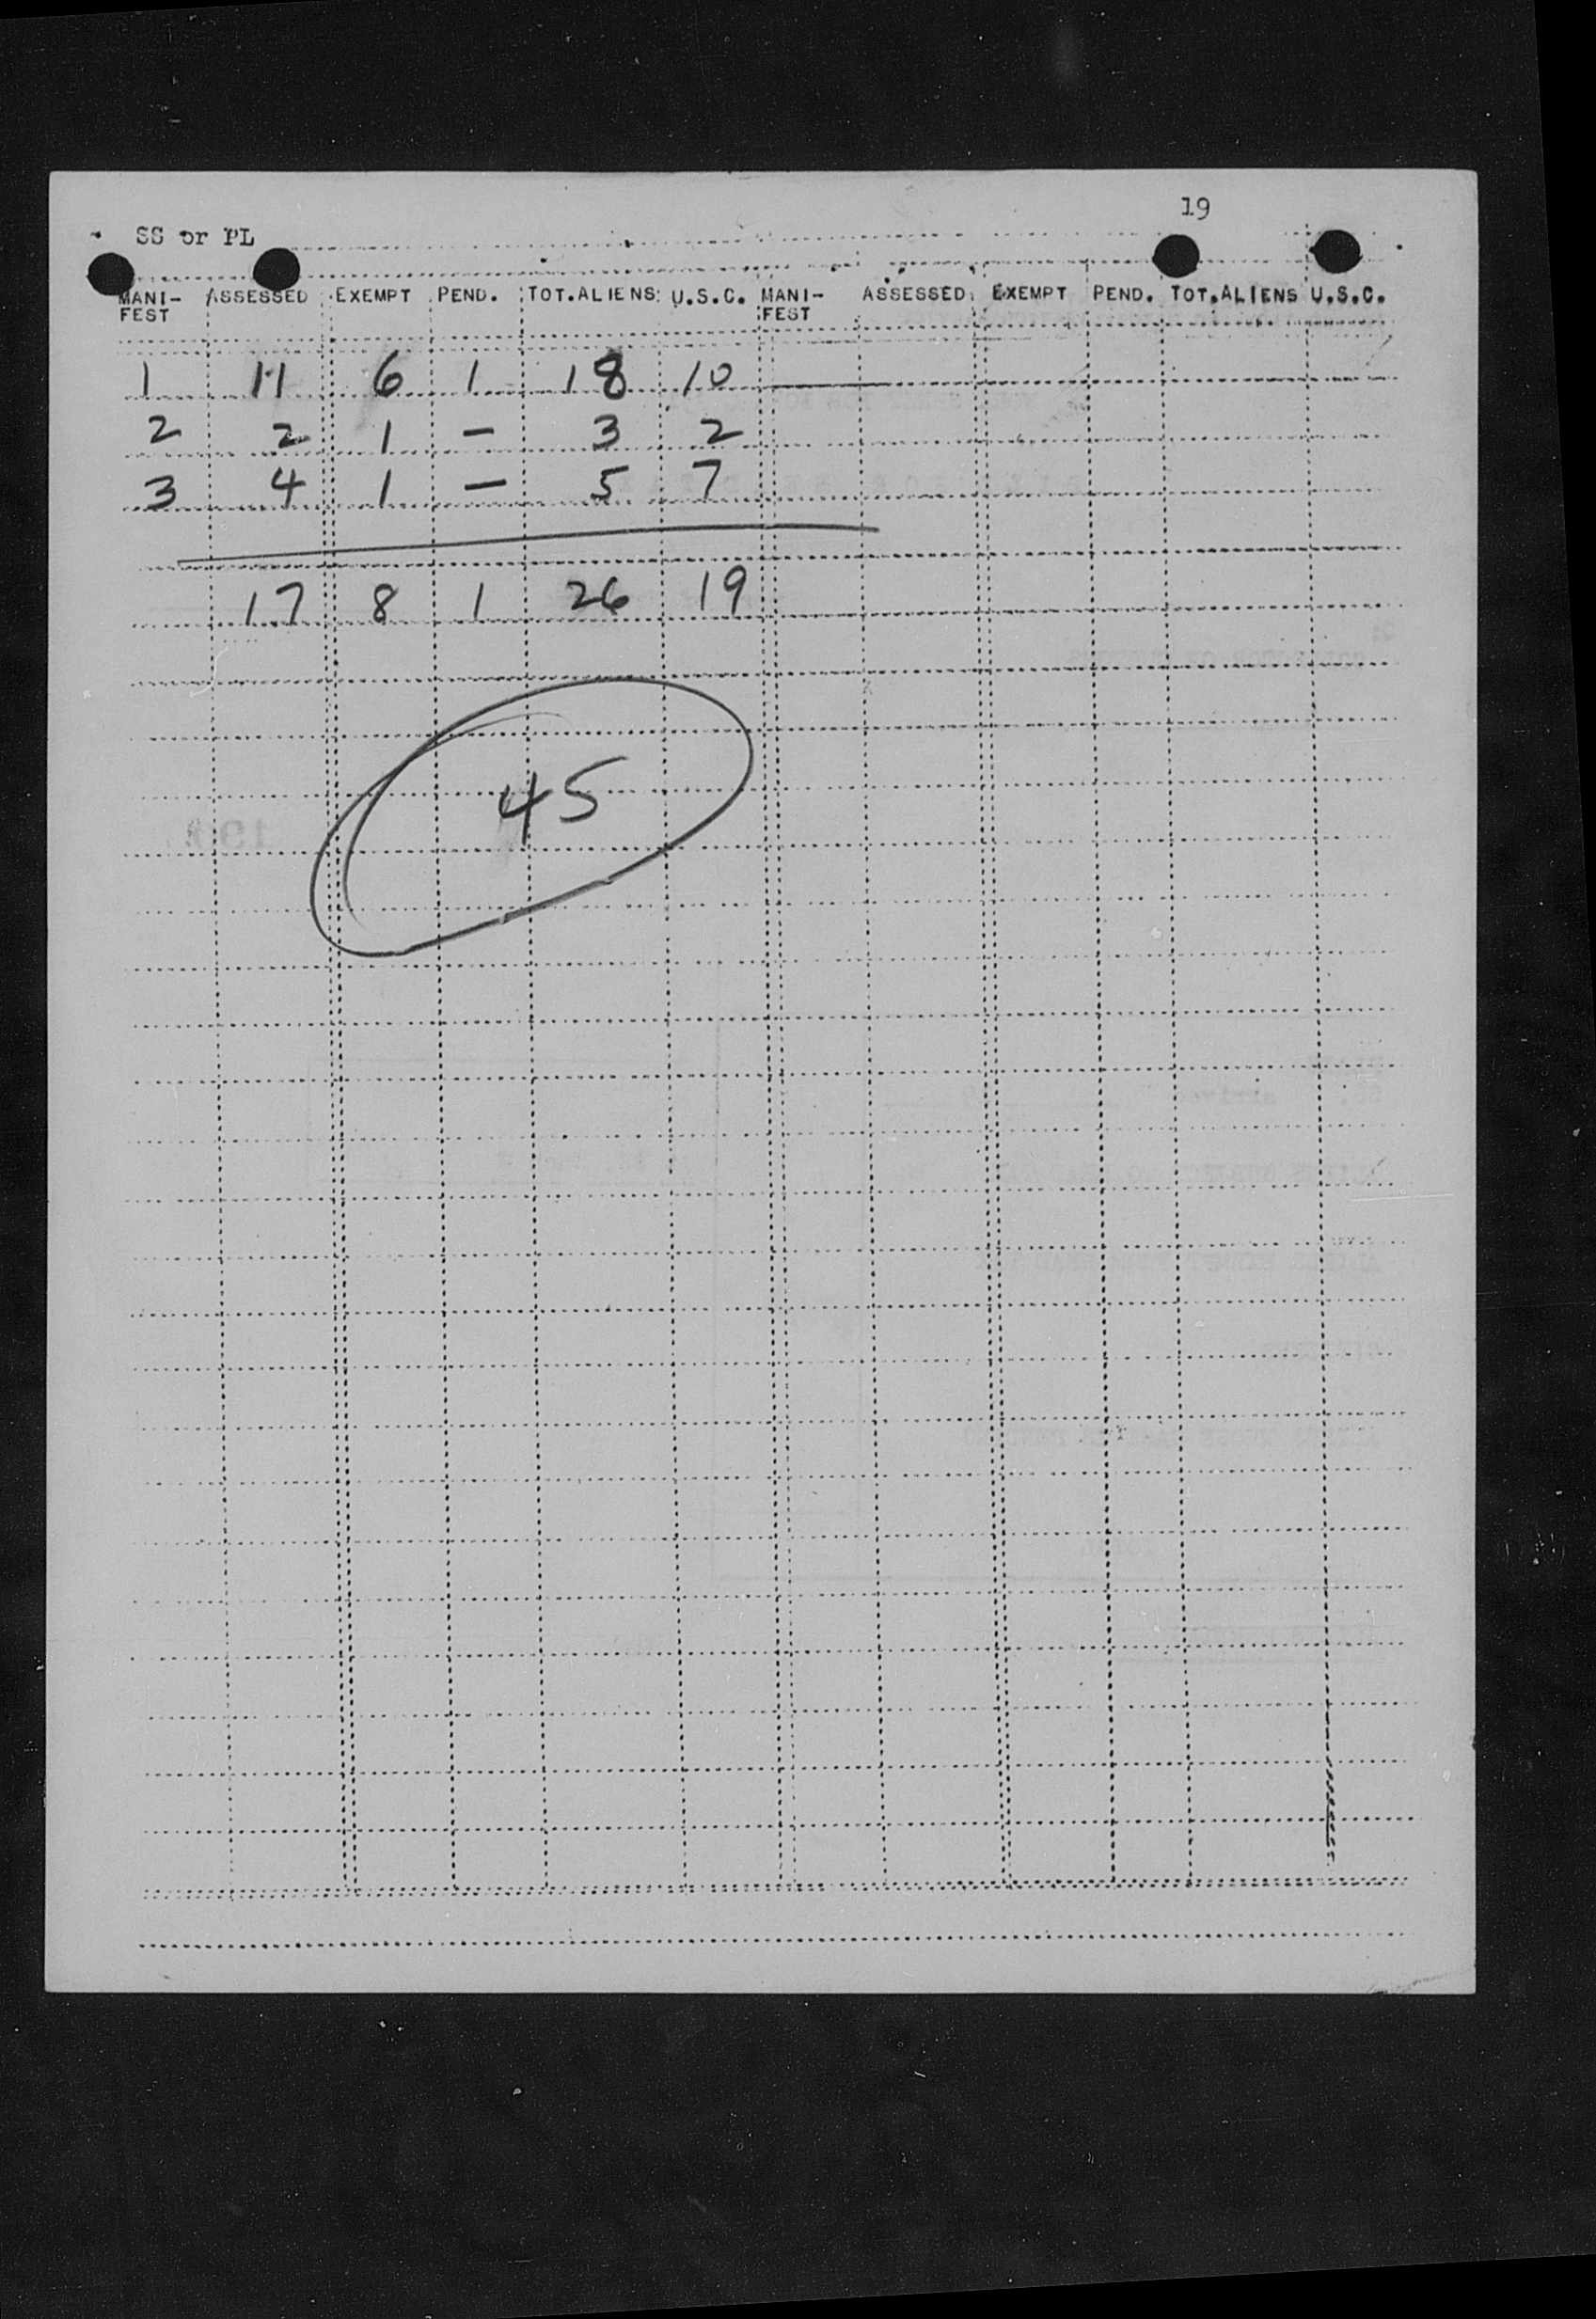 19
SS or PL
MANI-FEST ASSESSED EXEMPT PEND. TOT.ALIENS U.S.C. MANI-FEST ASSESSED EXEMPT PEND. TOT.ALIENS U.S.C.
1 11 6 1 18 10
2 2 1 - 3 2
3 4 1 - 5 7
17 8 1 26 19
45